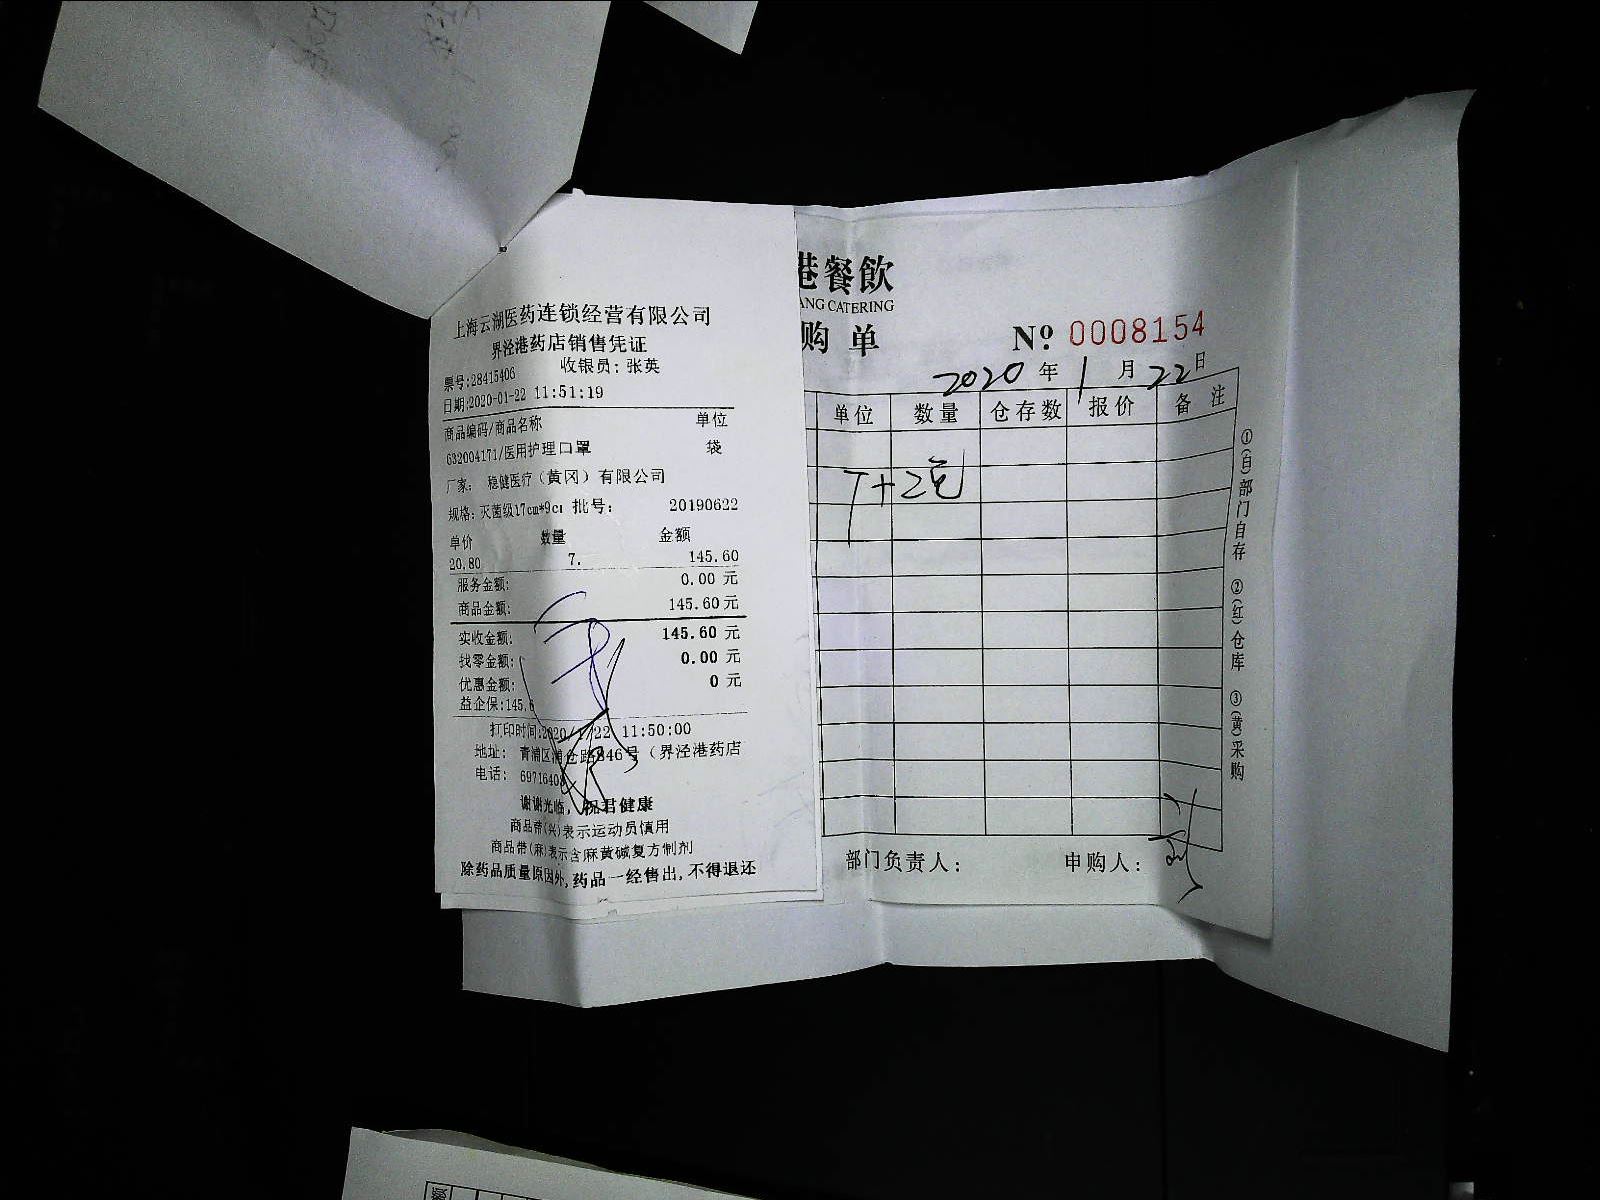 上海云湖医药连锁经营有限公司
界泾港药店销售凭证
票号:28415406 收银员: 张英
日期:2020-01-22 11:51:19
商品编码/商品名称 单位
632004171/医用护理口罩 袋
厂家: 稳健医疗（黄冈）有限公司
规格: 灭菌级17cm*9c 批号: 20190622
单价 数量 金额
20.80 7. 145.60
服务金额: 0.00 元
商品金额: 145.60 元
实收金额: 145.60 元
找零金额: 0.00 元
优惠金额: 0 元
益企保:145.6
打印时间:2020/1/22 11:50:00
地址: 青浦区浦仓路846号（界泾港药店
电话: 6971640
谢谢光临, 祝君健康
商品带(兴)表示运动员慎用
商品带(麻)表示含麻黄碱复方制剂
除药品质量原因外,药品一经售出,不得退还
港餐飲
ANG CATERING
购单
Nº 0008154
2020 年 1 月 22 日
单位 数量 仓存数 报价 备注
部门负责人:
申购人:
①(白)部门自存 ②(红)仓库 ③(黄)采购